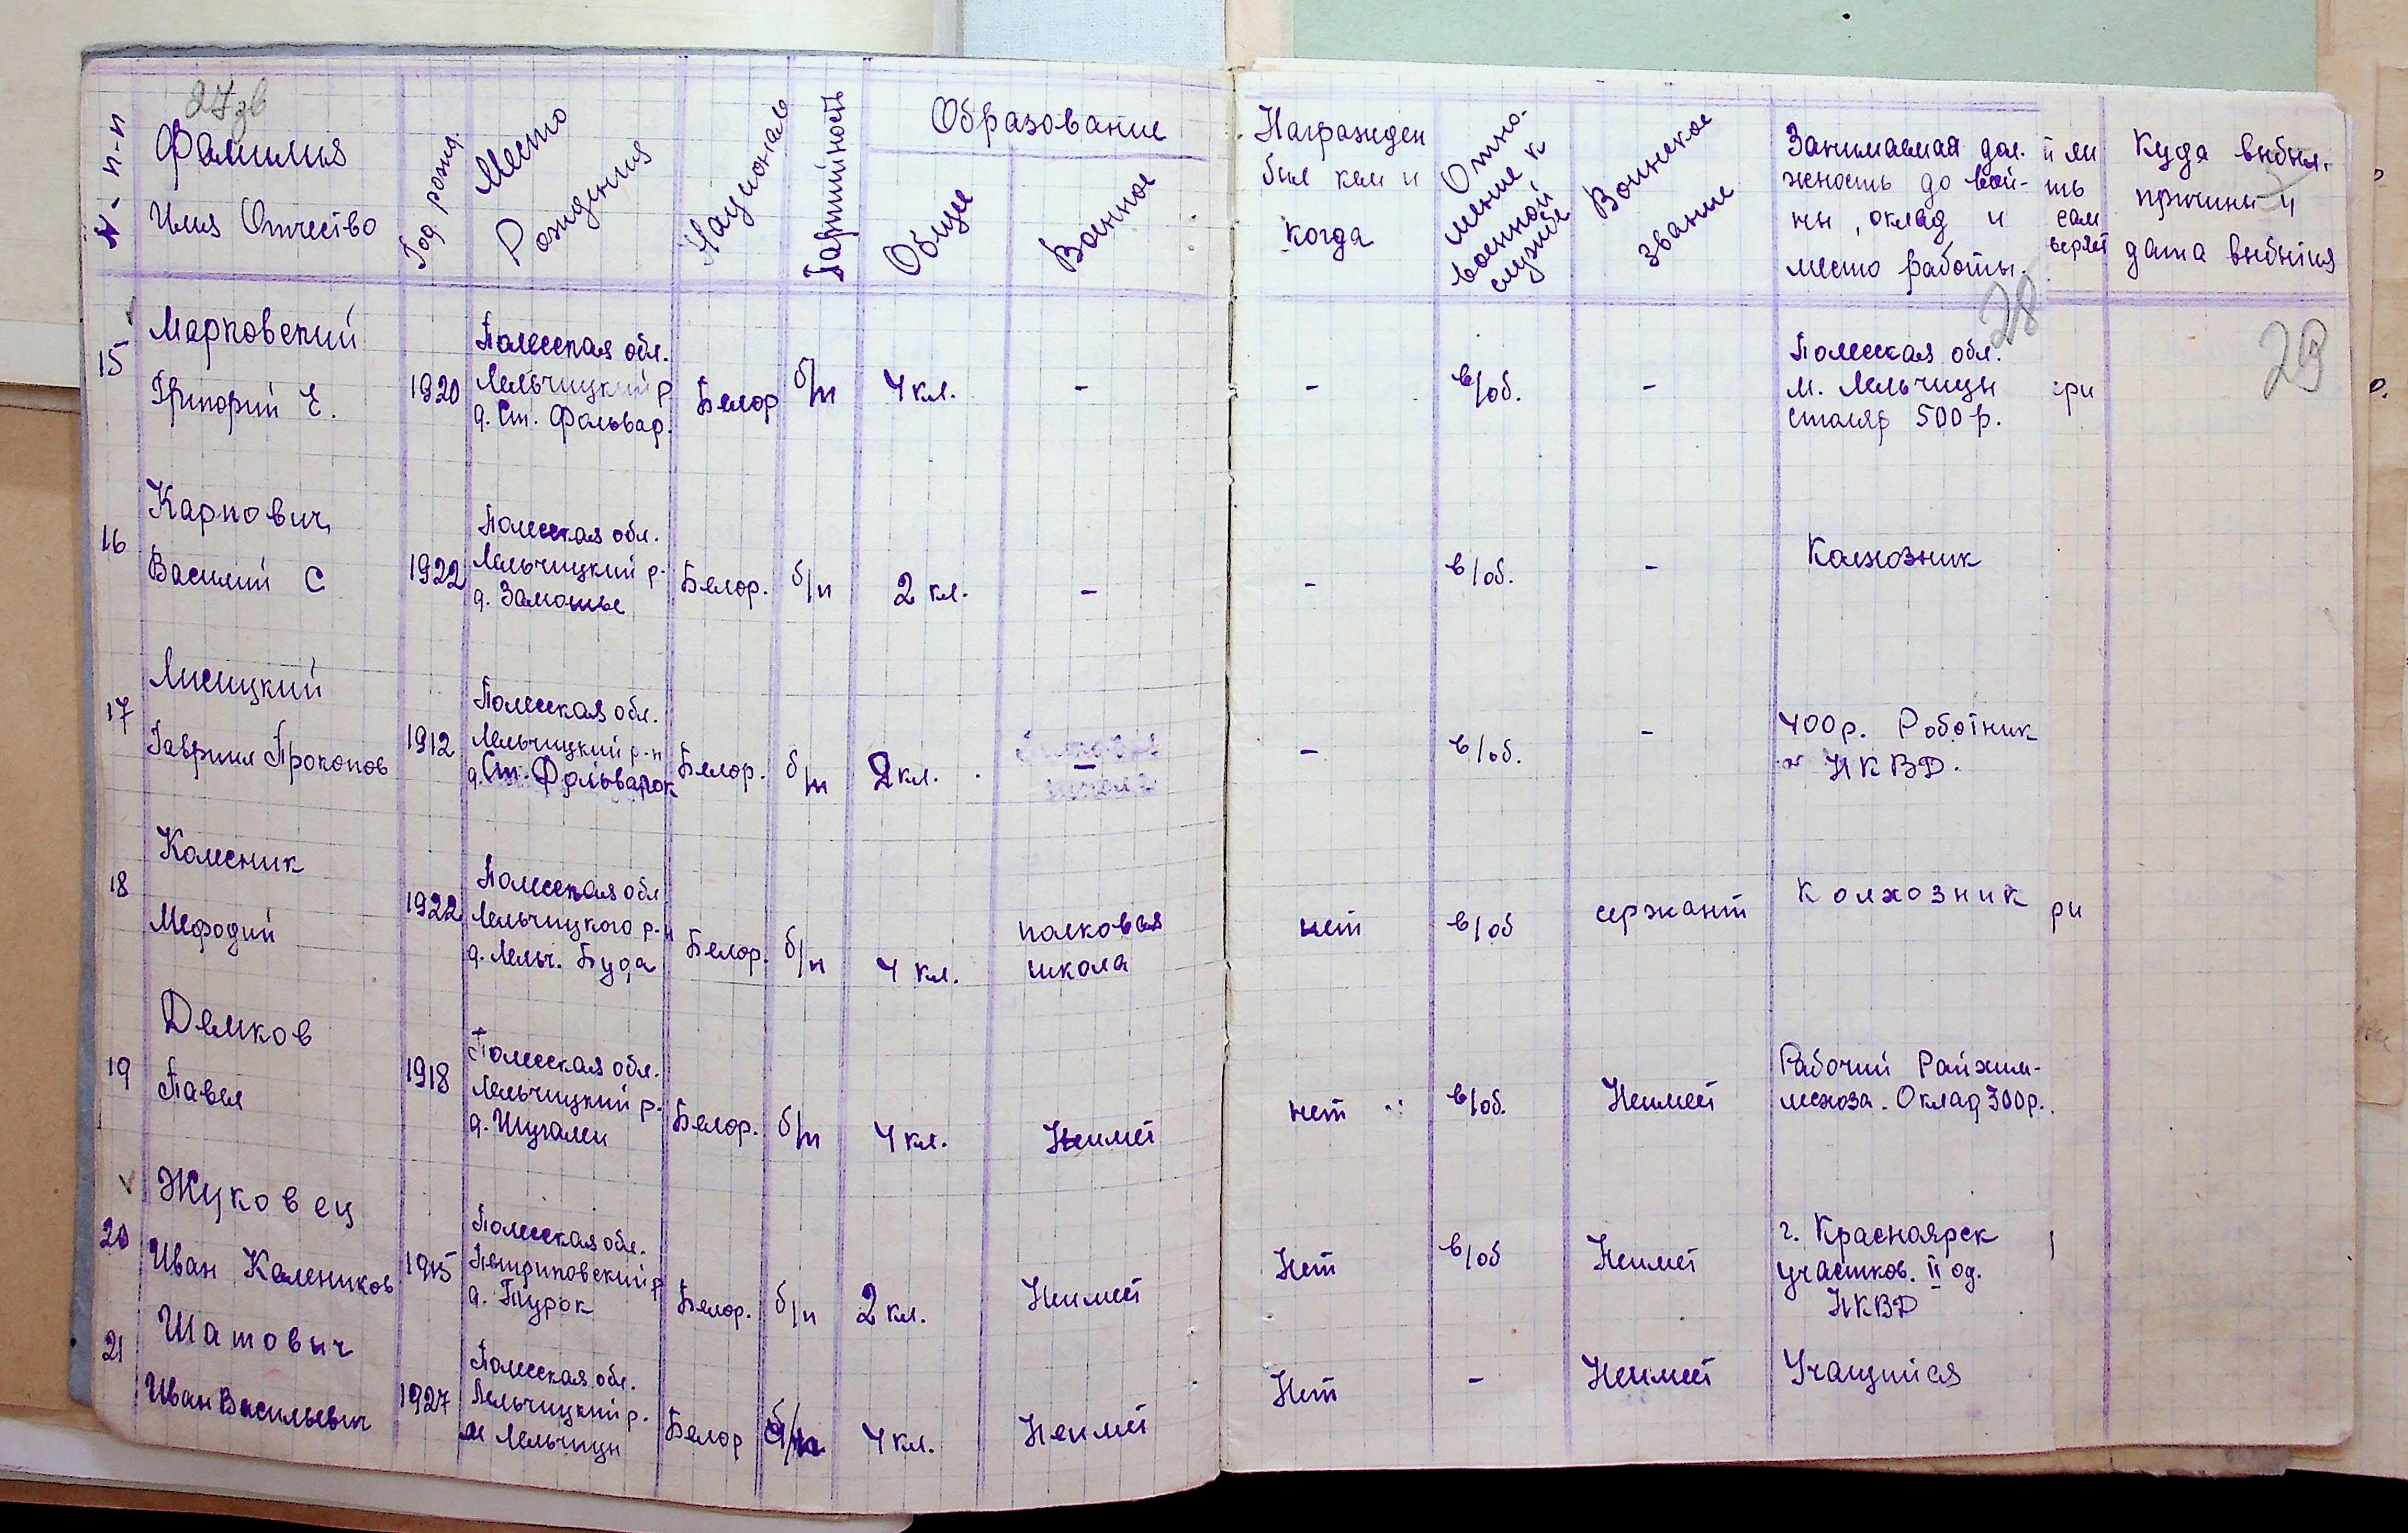 27 об
№ п-п
Фамилия
Имя Отчество
Год рожд.
Место
Рождения
Националь
Партийность
Образование
Общее
Военное
Награжден
был кем и
когда
Отно-
шение к
военной
службе
Воинское
звание
Занимаемая дол.
жность до вой-
ны, оклад и
место работы.
й ли
ть
сам
Куда выбыл,
причины и
дата выбытия
28
29
15
Марковский
Григорий Е.
1920
Полесская обл.
Лельчицкий р
д. Ст. Фольвар.
Белор
б/п
4 кл.
-
-
в/об.
-
Полесская обл.
м. Лельчицы
столяр 500 р.
ери
16
Карпович
Василий С
1922
Полесская обл.
Лельчицкий р-
д. Замошье
Белор.
б/п
2 кл.
-
-
в/об.
-
Колхозник
17
Лисицкий
Гавриил Прокопов
1912
Полесская обл.
Лельчицкий р-н
д. Ст. Фольварок
Белор.
б/п
2 кл.
-
-
в/об.
-
400 р. Роботник
НКВД.
18
Колесник
Мефодий
1922
Полесская обл
Лельчицкого р-н
д. Лельч. Буда
Белор.
б/п
4 кл.
полковая
школа
нет
в/об
сержант
Колхозник
ри
19
Демков
Павел
1918
Полесская обл.
Лельчицкий р-
д. Шугалеи
Белор.
б/п
4 кл.
Неимеет
нет
в/об.
Неимеет
Рабочий Райхим-
лесхоза. Оклад 300 р.
20
Жуковец
Иван Калеников
1915
Полесская обл.
Петриковский р
д. Турок
Белор.
б/п
2 кл.
Неимеет
Нет
в/об
Неимеет
г. Красноярск
участков. II од.
НКВД
21
Шатович
Иван Васильевич
1927
Полесская обл.
Лельчицкий р.
м Лельчицы
Белор
б/п
4 кл.
Неимеет
Нет
-
Неимеет
Учащийся